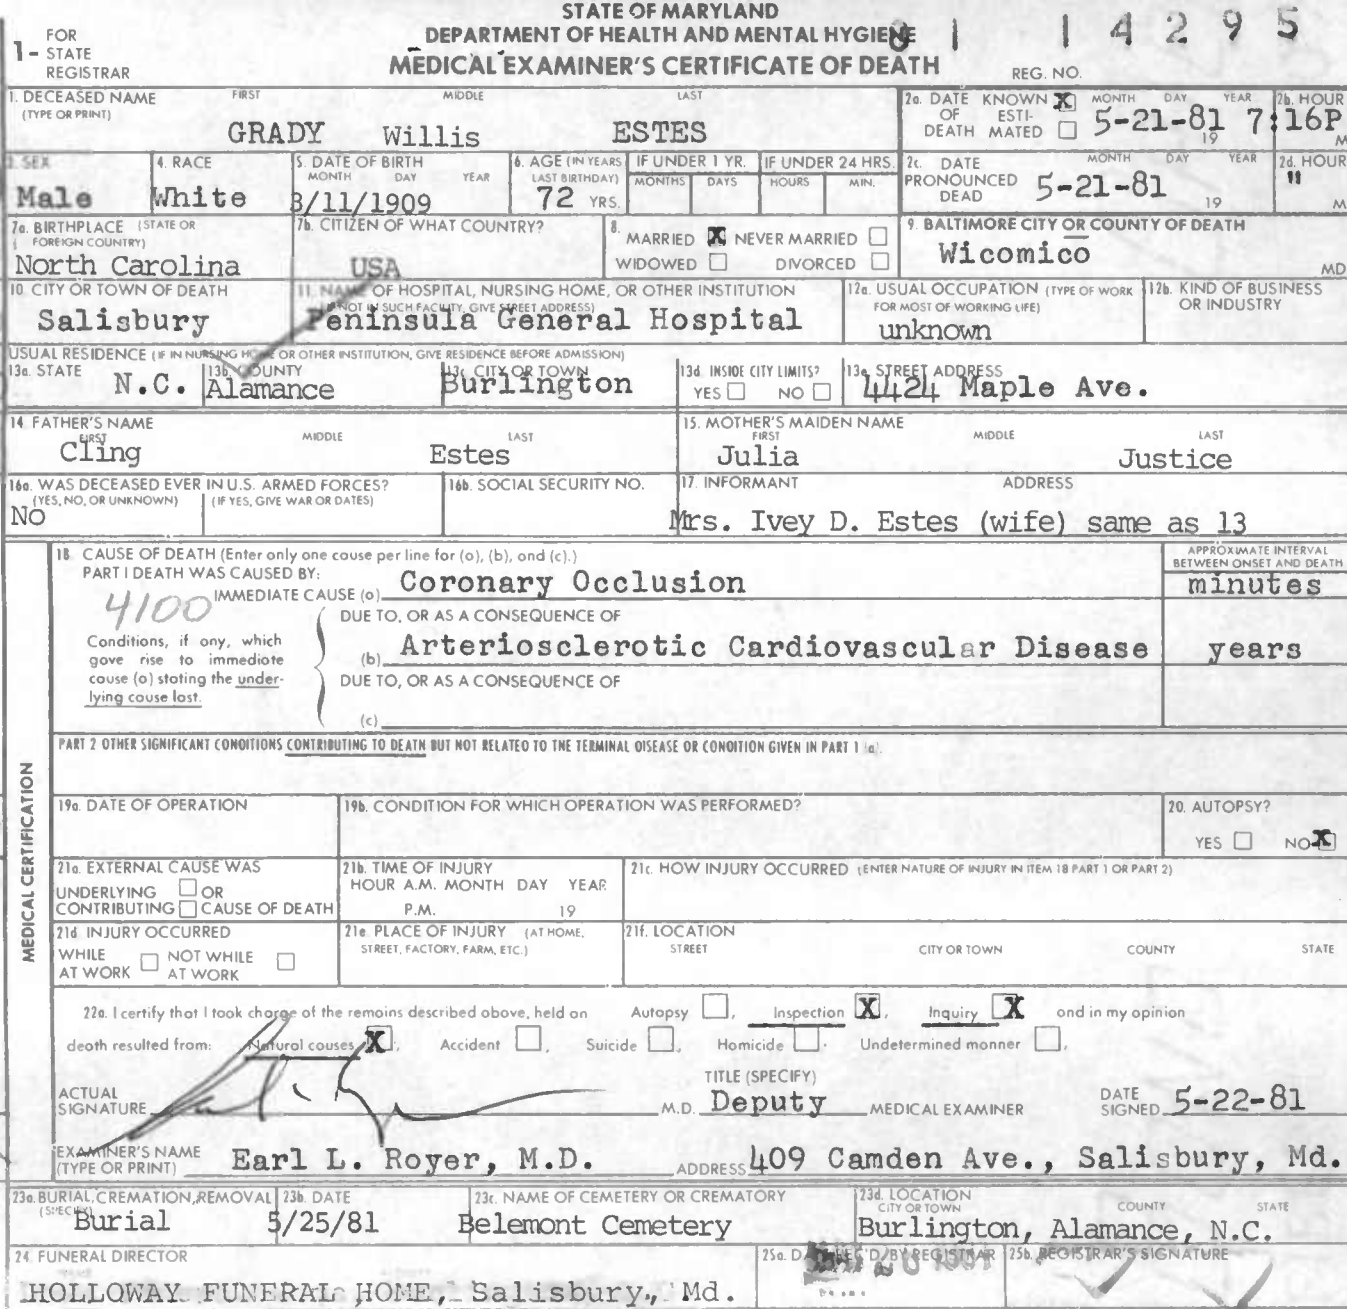 STATE OF MARYLAND
DEPARTMENT OF HEALTH AND MENTAL HYGIENE
MEDICAL EXAMINER'S CERTIFICATE OF DEATH
1- FOR STATE REGISTRAR
REG. NO. 81 14295
1. DECEASED NAME (TYPE OR PRINT) FIRST MIDDLE LAST
GRADY Willis ESTES
2a. DATE OF DEATH KNOWN X ESTIMATED MONTH DAY YEAR 5-21-81 19
2b. HOUR 7:16P M
3. SEX Male
4. RACE White
5. DATE OF BIRTH MONTH DAY YEAR
3/11/1909
6. AGE (IN YEARS LAST BIRTHDAY) 72 YRS.
IF UNDER 1 YR. MONTHS DAYS
IF UNDER 24 HRS. HOURS MIN.
2c. DATE PRONOUNCED DEAD MONTH DAY YEAR 5-21-81 19
2d. HOUR " M
7a. BIRTHPLACE (STATE OR FOREIGN COUNTRY)
North Carolina
7b. CITIZEN OF WHAT COUNTRY?
USA
8. MARRIED X NEVER MARRIED
WIDOWED DIVORCED
9. BALTIMORE CITY OR COUNTY OF DEATH
Wicomico MD
10. CITY OR TOWN OF DEATH
Salisbury
11. NAME OF HOSPITAL, NURSING HOME, OR OTHER INSTITUTION
(IF NOT IN SUCH FACILITY, GIVE STREET ADDRESS)
Peninsula General Hospital
12a. USUAL OCCUPATION (TYPE OF WORK FOR MOST OF WORKING LIFE)
unknown
12b. KIND OF BUSINESS OR INDUSTRY
USUAL RESIDENCE (IF IN NURSING HOME OR OTHER INSTITUTION, GIVE RESIDENCE BEFORE ADMISSION)
13a. STATE N.C.
13b. COUNTY Alamance
13c. CITY OR TOWN Burlington
13d. INSIDE CITY LIMITS? YES NO
13e. STREET ADDRESS 4424 Maple Ave.
14. FATHER'S NAME FIRST MIDDLE LAST
Cling Estes
15. MOTHER'S MAIDEN NAME FIRST MIDDLE LAST
Julia Justice
16a. WAS DECEASED EVER IN U.S. ARMED FORCES?
(YES, NO, OR UNKNOWN) (IF YES, GIVE WAR OR DATES)
No
16b. SOCIAL SECURITY NO.
17. INFORMANT ADDRESS
Mrs. Ivey D. Estes (wife) same as 13
MEDICAL CERTIFICATION
18. CAUSE OF DEATH (Enter only one cause per line for (a), (b), and (c).)
PART I DEATH WAS CAUSED BY:
APPROXIMATE INTERVAL BETWEEN ONSET AND DEATH
IMMEDIATE CAUSE (a) Coronary Occlusion minutes
4100
DUE TO, OR AS A CONSEQUENCE OF
Conditions, if any, which gave rise to immediate cause (a) stating the underlying cause last.
(b) Arteriosclerotic Cardiovascular Disease years
DUE TO, OR AS A CONSEQUENCE OF
(c)
PART 2 OTHER SIGNIFICANT CONDITIONS CONTRIBUTING TO DEATH BUT NOT RELATED TO THE TERMINAL DISEASE OR CONDITION GIVEN IN PART 1 (a).
19a. DATE OF OPERATION
19b. CONDITION FOR WHICH OPERATION WAS PERFORMED?
20. AUTOPSY?
YES NO X
21a. EXTERNAL CAUSE WAS
UNDERLYING OR
CONTRIBUTING CAUSE OF DEATH
21b. TIME OF INJURY
HOUR A.M. MONTH DAY YEAR
P.M. 19
21c. HOW INJURY OCCURRED (ENTER NATURE OF INJURY IN ITEM 18 PART 1 OR PART 2)
21d. INJURY OCCURRED
WHILE AT WORK NOT WHILE AT WORK
21e. PLACE OF INJURY (AT HOME, STREET, FACTORY, FARM, ETC.)
21f. LOCATION
STREET CITY OR TOWN COUNTY STATE
22a. I certify that I took charge of the remains described above, held an Autopsy , Inspection X, Inquiry X and in my opinion
death resulted from: Natural causes X, Accident , Suicide , Homicide , Undetermined manner .
ACTUAL SIGNATURE M.D.
TITLE (SPECIFY) Deputy MEDICAL EXAMINER
DATE SIGNED 5-22-81
EXAMINER'S NAME (TYPE OR PRINT) Earl L. Royer, M.D.
ADDRESS 409 Camden Ave., Salisbury, Md.
23a. BURIAL, CREMATION, REMOVAL (SPECIFY)
Burial
23b. DATE
5/25/81
23c. NAME OF CEMETERY OR CREMATORY
Belemont Cemetery
23d. LOCATION CITY OR TOWN COUNTY STATE
Burlington, Alamance, N.C.
24. FUNERAL DIRECTOR
HOLLOWAY FUNERAL HOME, Salisbury, Md.
25a. DATE REC'D BY REGISTRAR
25b. REGISTRAR'S SIGNATURE